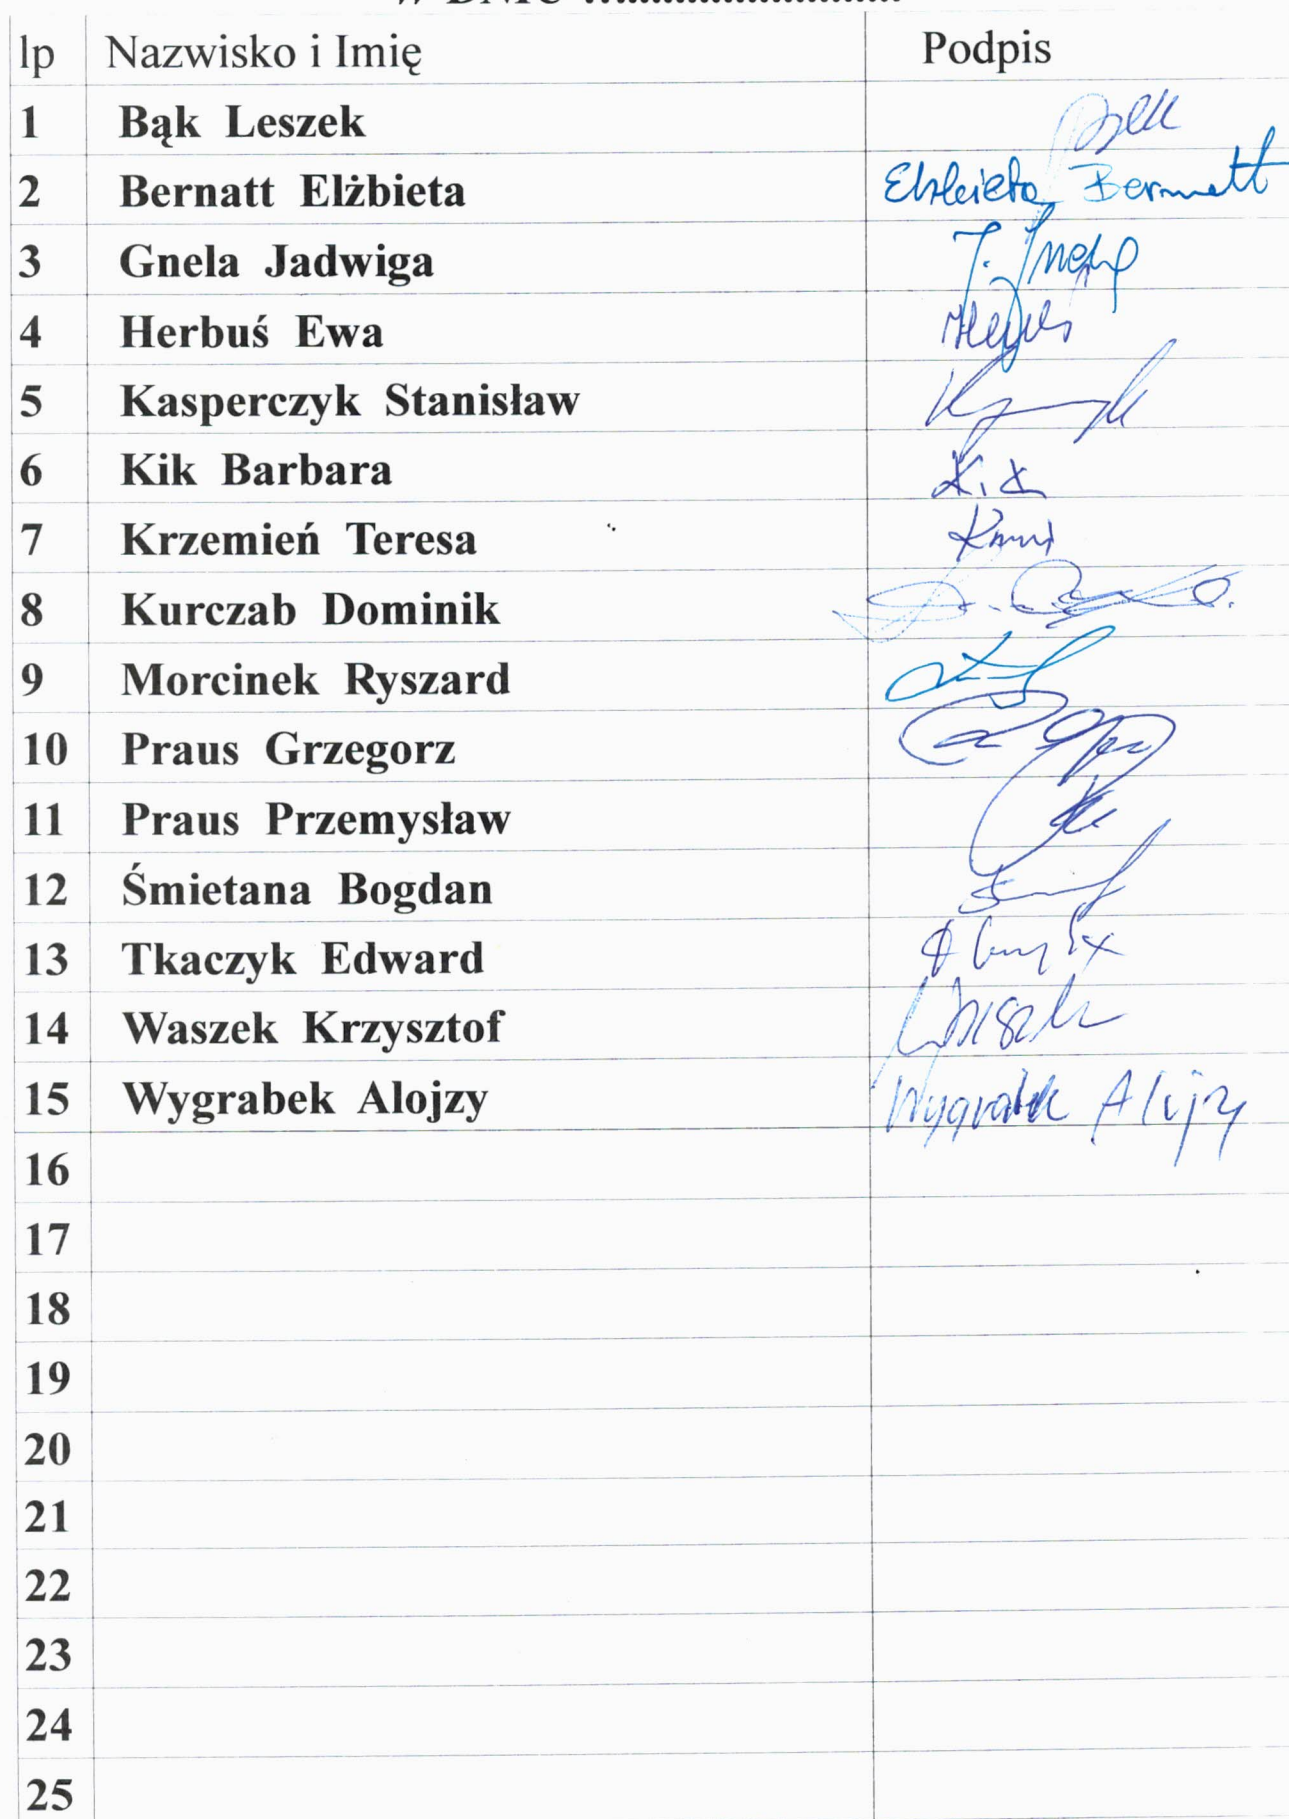 W DNIU ..............................
lp Nazwisko i Imię Podpis
1 Bąk Leszek
2 Bernatt Elżbieta Elżbieta Bernatt
3 Gnela Jadwiga J. Gnela
4 Herbuś Ewa
5 Kasperczyk Stanisław
6 Kik Barbara
7 Krzemień Teresa
8 Kurczab Dominik
9 Morcinek Ryszard
10 Praus Grzegorz
11 Praus Przemysław
12 Śmietana Bogdan
13 Tkaczyk Edward
14 Waszek Krzysztof
15 Wygrabek Alojzy Wygrabek Alojzy
16
17
18
19
20
21
22
23
24
25